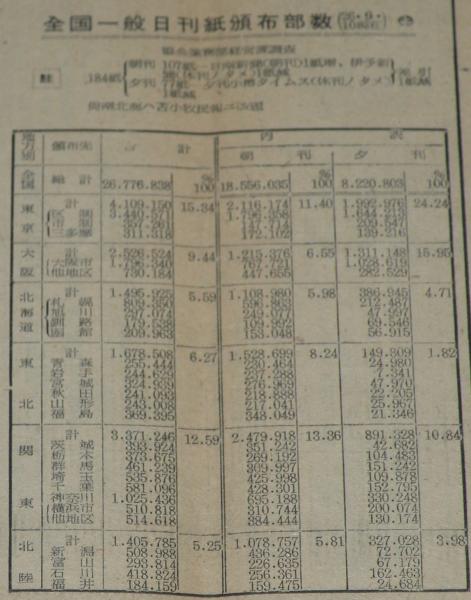 全国一般日刊紙頒布部数
184紙
朝刊 107紙
夕刊 77紙
地方別 頒布先 合計 内訳
朝刊 夕刊
全国 総計 26.776.838 % 100 18.556.035 % 100 8.220.803 % 100
東京 計 4.109.150 15.34 2.116.174 11.40 1.992.976 24.24
3.440.571 1.796.358 1.644.213
三多摩 311.318 172.102 139.216
大阪 計 2.526.524 9.44 1.215.376 6.55 1.311.148 15.95
大阪市 1.796.340 767.721 1.028.619
他地区 730.184 447.655 282.529
北海道 計 1.495.925 5.59 1.108.980 5.98 386.945 4.71
札幌 809.350 596.863 212.487
旭川 297.074 249.077 47.997
釧路 179.538 109.992 69.546
函館 209.963 153.048 56.915
東北 計 1.678.508 6.27 1.528.699 8.24 149.809 1.82
青森 255.444 230.464 24.980
岩手 244.629 237.288 7.341
宮城 324.939 276.969 47.970
秋田 241.093 218.888 22.205
山形 243.008 217.041 25.967
福島 369.395 348.049 21.346
関東 計 3.371.246 12.59 2.479.918 13.36 891.328 10.84
茨城 393.924 351.242 42.682
栃木 373.675 269.192 104.483
群馬 461.239 309.997 151.242
埼玉 535.876 425.998 109.878
千葉 581.096 428.301 152.795
神奈川 1.025.436 695.188 330.248
横浜市 510.818 310.744 200.074
他地区 514.618 384.444 130.174
北陸 計 1.405.785 5.25 1.078.757 5.81 327.028 3.98
新潟 508.988 436.286 72.702
富山 293.814 226.635 67.179
石川 418.824 256.361 162.463
福井 184.159 159.475 24.684